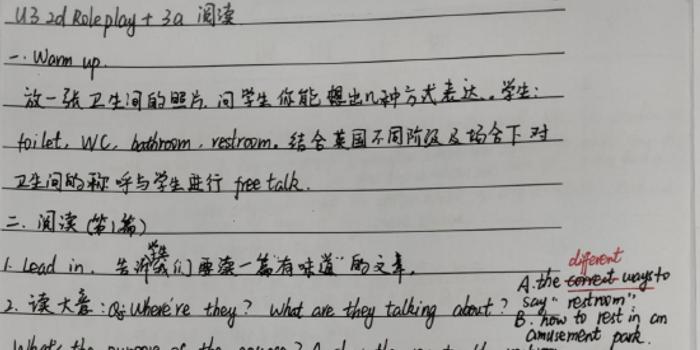 U3 2d Roleplay + 3a 阅读
一. Warm up.
放一张卫生间的照片, 问学生你能想出几种方式表达。学生:
toilet, WC, bathroom, restroom. 结合英国不同阶级及场合下对
卫生间的称呼与学生进行 free talk.
二. 阅读 (第1篇)
1. Lead in. 告诉学生我们要读一篇"有味道"的文章.
2. 读大意: Q: Where're they? What are they talking about?
A. the correct different ways to
say "restroom".
B. how to rest in an
amusement park.
What's the purpose of the